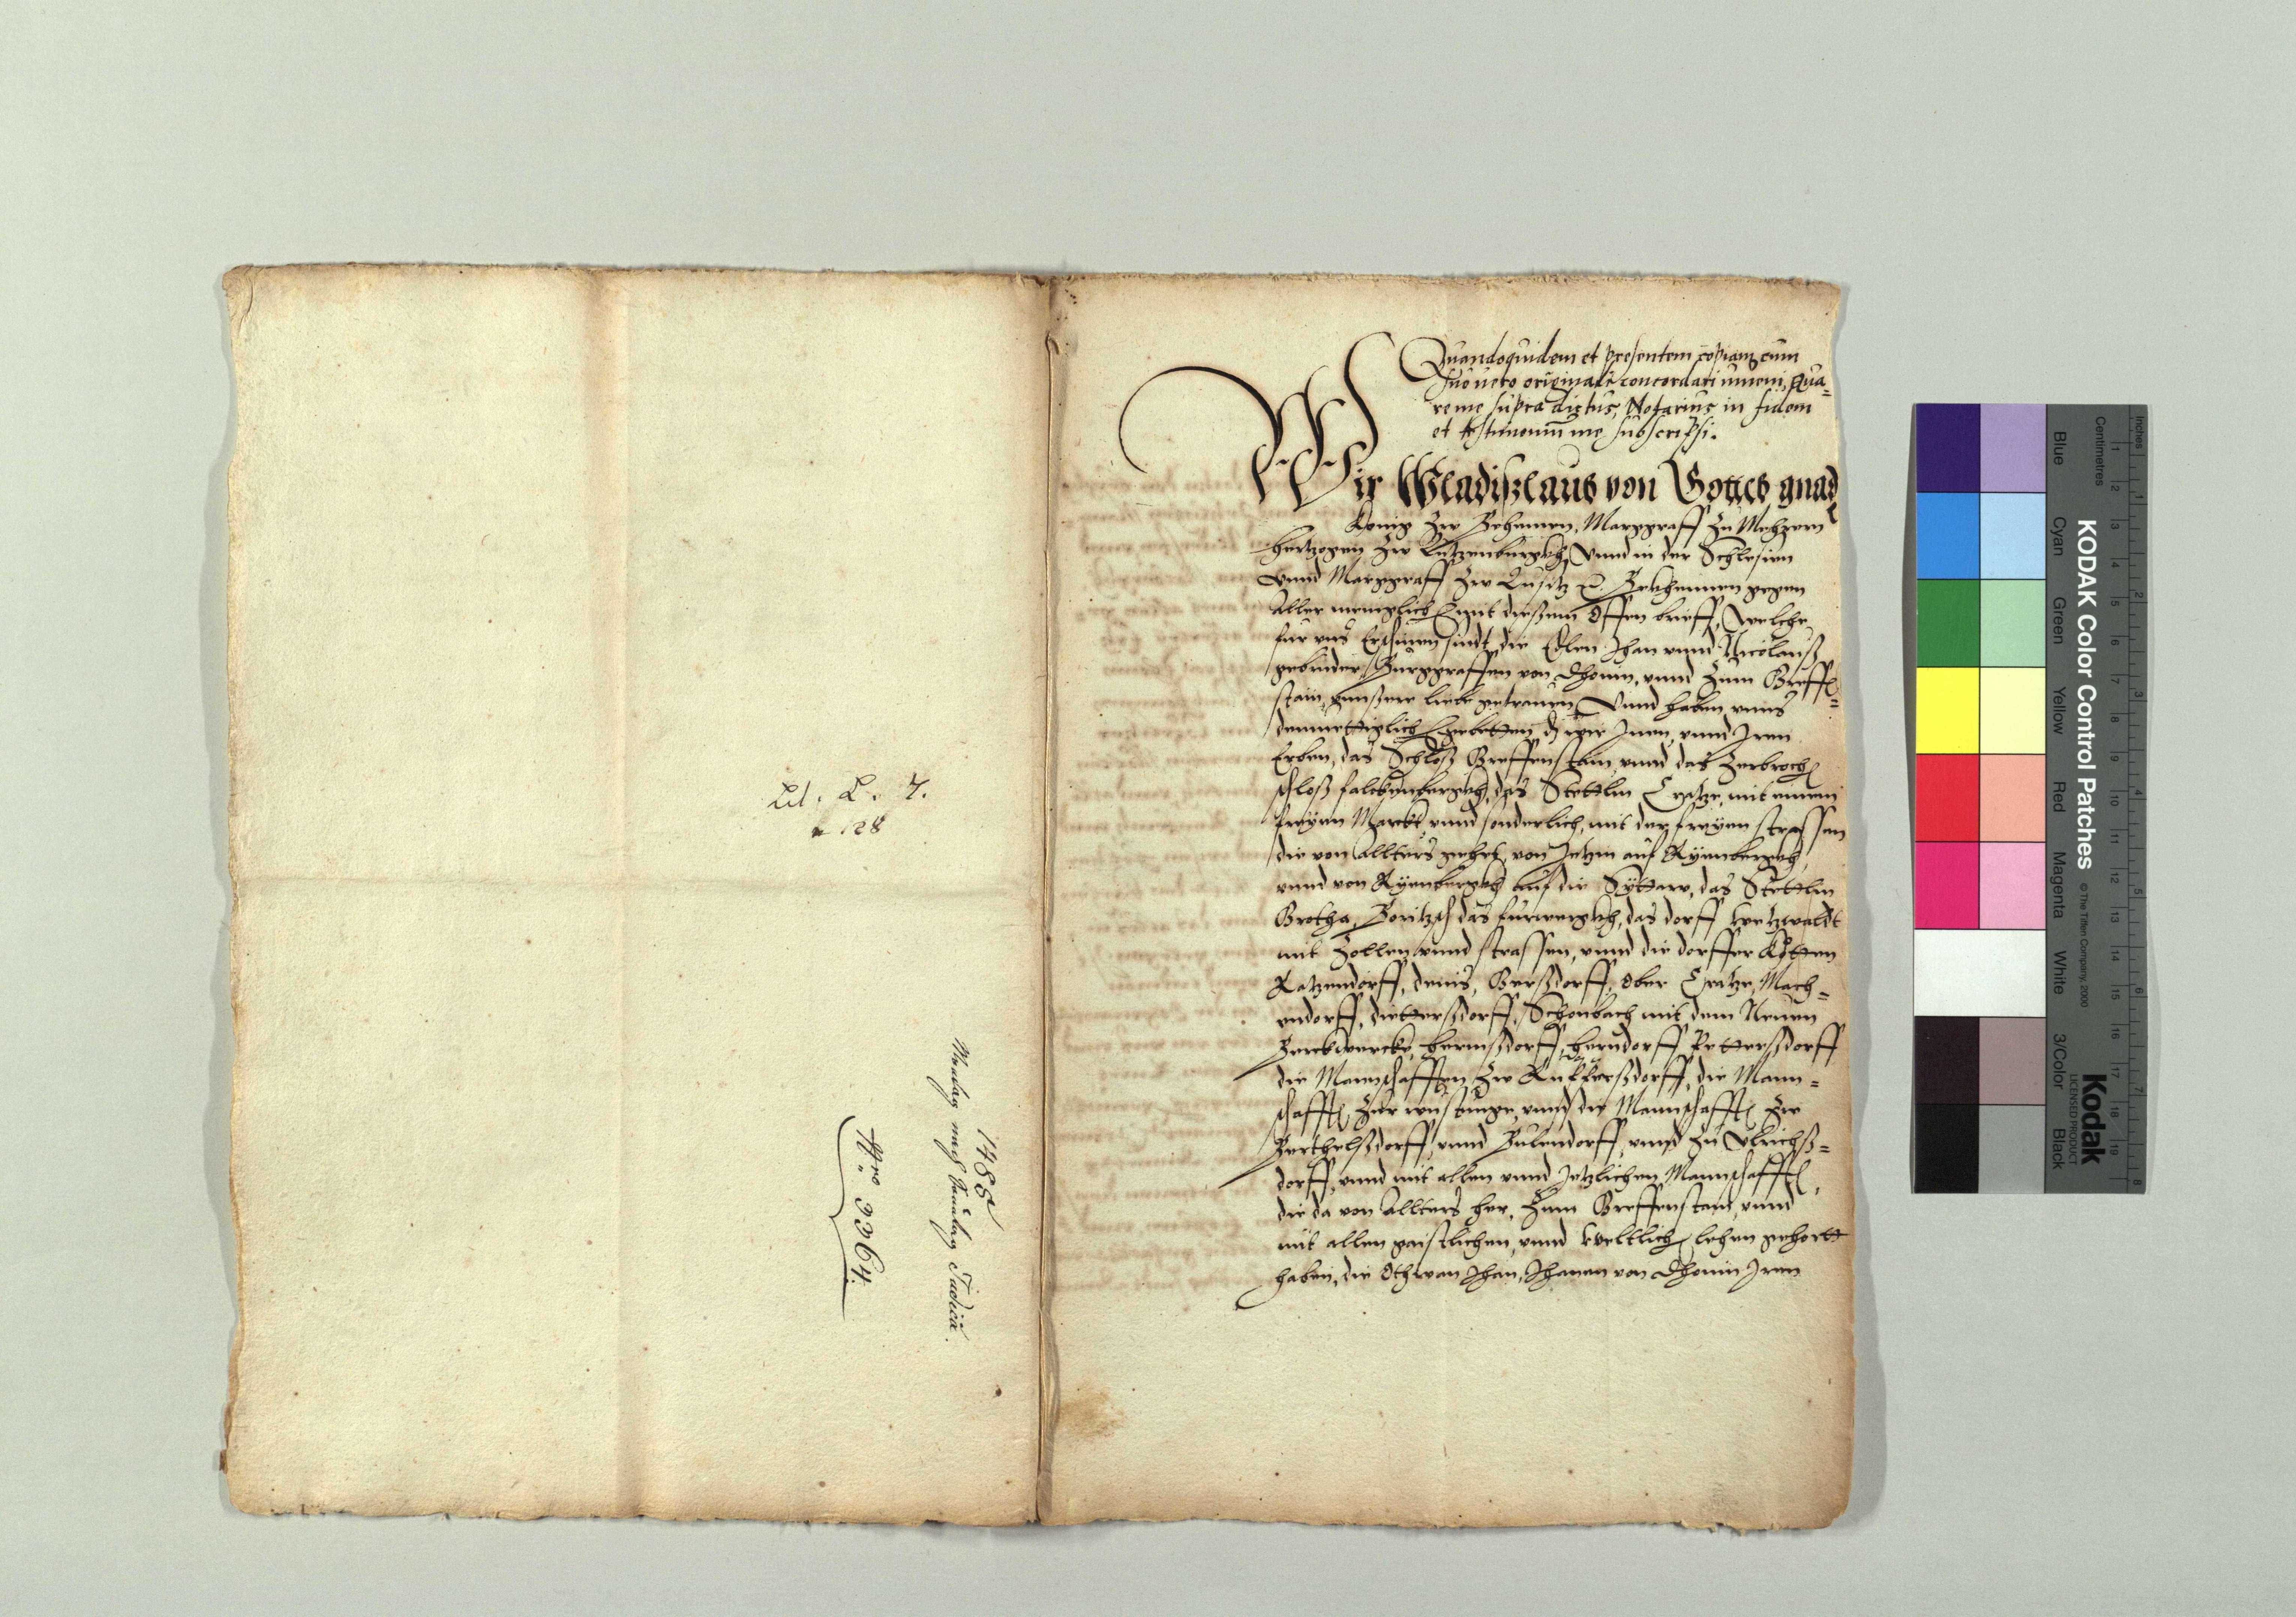 Lit. L. 7.
n 128
1488
Montag nach Sontag Judica.
Nro 3364.
Quandoquidem et presentem copiam cum
suo vero originali concordari inveni, Qua=
re me supra dictus Notarius in fidem
et testimonium me subscripsi.
Wir Wladißlaus von Gottes gnad
Konig Zw Behemen, Marggraff Zu Mehrern
Hertzogen Zw Lutzenburgkh, Vnnd in der Schlesien
Vnnd Marggraff Zw Lusitz Bekhennen gegen
Aller meniglich mit dießem Offen brieff, Welche
fur vns Erschinen sindt die Edlen Jhan vnnd Nicolauß
gebrüder Burggraffen von Dhonin, vnnd Zum Greffe=
stain, vnßere liebe getrauen Vnnd haben vnns
demuettiglich Gebetten, dz wir Inen, vnnd Iren
Erben, das Schloß Greffenstain vnnd das Zerbroch
schloß falckhenbergkh, das Stettlin Cratze, mit einem
freyen Marckt, vnnd sonderlich, mit der freyen strassen
die von Allters gehet, von auf Aychenbergkh
vnnd von Aychenbergkh auf die Syttaw, das Stettlin
Grotha, das furwergkh, das dorff Ketzwaldt
mit Zollen vnnd strassen, vnnd die dorffer Ketten
Ratzendorff, Gerßdorff, Ober Cratze, Mach=
endorff, Dietterßdorff, Schonbach mit dem Neuen
Berckwercke, hermßdorff, herndorff Petterßdorff
die Mannschafften Zw Rukherßdorff, die Mann=
schafft Zur wustunge, vnnd die Mannschafft Zw
Berthelßdorff, vnnd Bulendorff, vnnd Zu Vlrichß=
dorff, vnnd mit allen vnnd Jetzlichen Mannschafft,
die da von Allters her, Zum Greffenstain, vnnd
mit allen gaistlichen, vnnd Weltlich lehen gehortt
haben, die Ethwan Jhan, Jhanen von Dhonin Iren